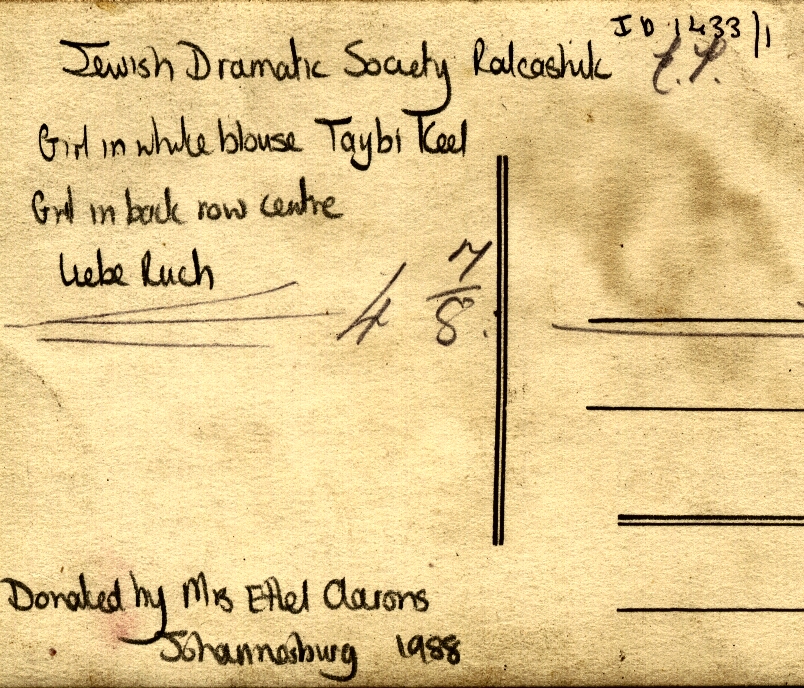 ID 1433/1
Jewish Dramatic Society Ralcashik
Girl in white blouse Taybi Keel
Girl in back row centre
Liebe Ruch
4 7/8.
Donated by Mrs Ethel Aarons
Johannesburg 1988